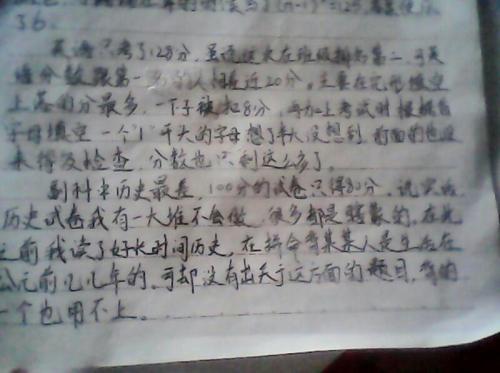 36.
英语只考了128分，虽说这次在班级排名第二，可英
语分数跟第一名的人相差近20分。主要在完形填空
上落的分最多，一下子被扣8分，再加上考试时根据首
字母填空 一个"i"开头的字母想了半天没想到 前面的也没
来得及检查，分数也只剩这么多了。
副科中历史最差，100分的试卷只得80分，说实话
历史试卷我有一大堆不会做，很多都是猜蒙的，在
之前我读了好长时间历史，在拼命背某某人是生在
公元前几几年的，可却没有出关于这方面的题目，背的
一个也用不上。